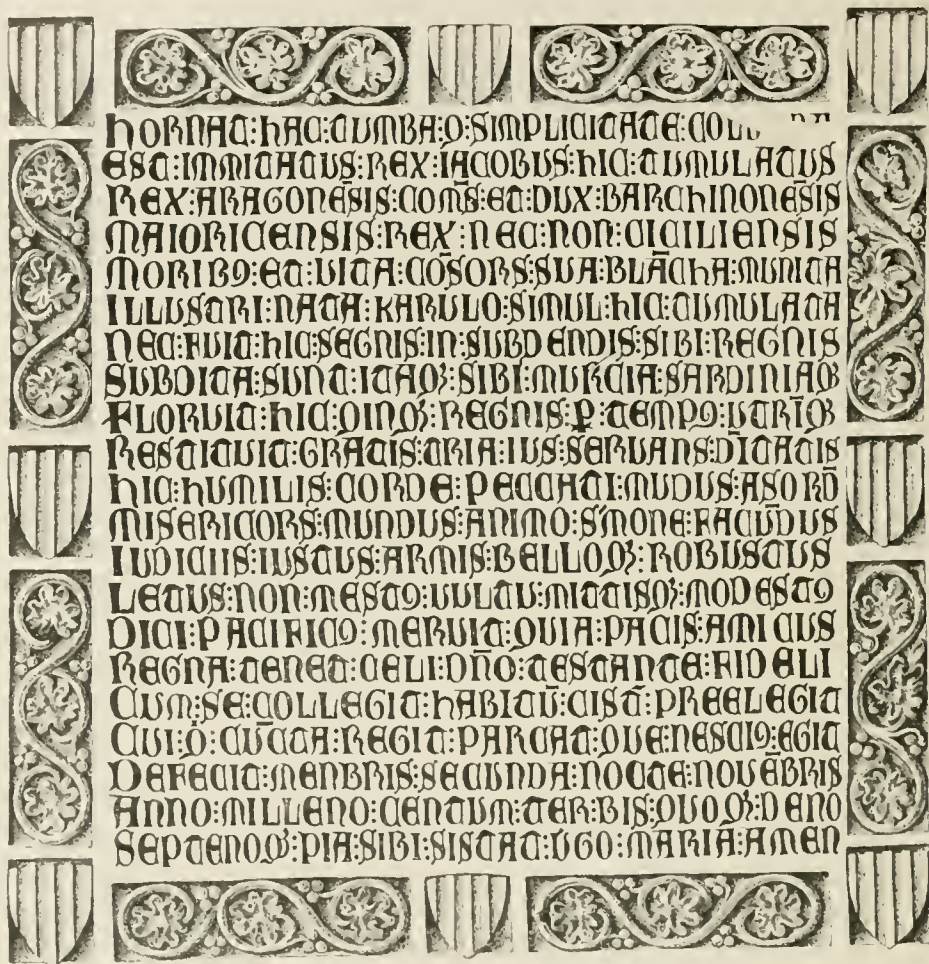 HORNAT:HAC:TUMBA:Q:SIMPLICITATE:
EST:IMMITATUS:REX:IACOBUS:HIC:TUMULATUS
REX:ARAGONĒSIS:COMS̄:ET:DUX:BARCHINONĒSIS
MAIORICENSIS:REX:NEC:NON:CICILIENSIS
MORIBꝰ:ET:UITA:CŌSORS:SUA:BLĀCHA:MUNITA
ILLUSTRI:NATA:KARULO:SIMUL:HIC:TUMULATA
NEC:FUIT:HIC:SEGNIS:IN:SUBDENDIS:SIBI:REGNIS
SUBDITA:SUNT:ITAQꝫ:SIBI:MURCIA:SARDINIAQꝫ
FLORUIT:HIC:QINQꝫ:REGNIS:Ꝑ:TEMPꝰ:UTRĪQꝫ
RESTITUIT:GRĀTIS:TRIA:IUS:SERUANS:DĪTATIS
HIC:HUMILIS:CORDE:PECCATI:MUDUS:ASORD̄
MISERICORS:MUNDUS:ANIMO:S'MONE:FACŪDUS
IUDICIIS:IUSTUS:ARMIS:BELLOQꝫ:ROBUSTUS
LETUS:NON:MESTꝰ:UULTU:MITTISQꝫ:MODESTꝰ
DICI:PACIFICꝰ:MERUIT:QUIA:PACIS:AMICUS
REGNA:TENET:CELI:DN̄O:TESTANTE:FIDELI
CUM:SE:COLLEGIT:HABITŪ:CIST̄:PREELEGIT
CUI:Q:CŪCTA:REGIT:PARCAT:QUE:NESCIꝰ:EGIT
DEFECIT:MENBRIS:SECUNDA:NOCTE:NOUĒBRIS
ANNO:MILLENO:CENTUM:TER:BIS:QUOQꝫ:DENO
SEPTENOQꝫ:PIA:SIBI:SISTAT:UGO:MARIA:AMEN